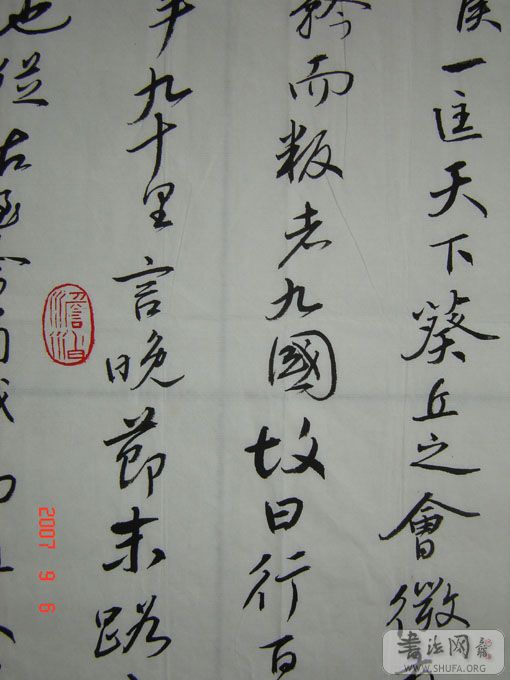 侯一匡天下葵丘之會微
矜而叛者九國故曰行百
半九十里言晚節末路
也從古至今
澹泊
2007 9 6
书法网
WWW.SHUFA.ORG